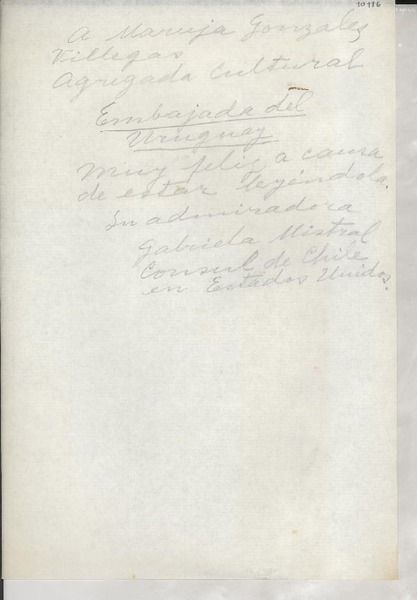 10196
A Maruja Gonzalez
Villegas
Agregada Cultural
Embajada del
Uruguay
Muy feliz a causa
de estar leyéndola.
Su admiradora
Gabriela Mistral
Consul de Chile
en Estados Unidos.